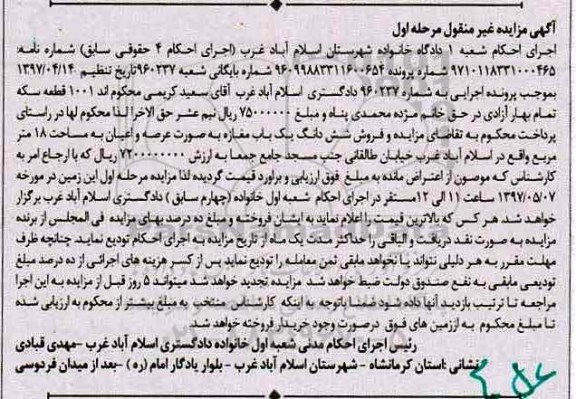 آگهی مزایده غیر منقول مرحله اول
اجرای احکام شعبه ۱ دادگاه خانواده شهرستان اسلام آباد غرب (اجرای احکام ۴ حقوقی سابق) شماره نامه:
۹۷۱۰۱۱۸۳۳۱۰۰۰۴۶۵ شماره پرونده ۹۶۰۹۹۸۸۳۳۱۱۶۰۰۶۵۴ شماره بایگانی شعبه ۹۶۰۲۳۷ تاریخ تنظیم ۱۳۹۷/۰۴/۱۴
بموجب پرونده اجرایی به شماره ۹۶۰۲۳۷ دادگستری اسلام آباد غرب آقای سعید کریمی محکوم اند ۱۰۰۱ قطعه سکه
تمام بهار آزادی در حق خانم مژده محمدی پناه و مبلغ ۷۵۰۰۰۰۰۰ ریال نیم عشر حق الاجرا لذا محکوم لها در راستای
پرداخت محکوم به تقاضای مزایده و فروش شش دانگ یک باب مغازه به صورت عرصه و اعیان به مساحت ۱۸ متر
مربع واقع در اسلام آباد غرب خیابان طالقانی جنب مسجد جامع جمعا به ارزش ۷۲۰۰۰۰۰۰۰۰ ریال که با ارجاع امر به
کارشناس که موصون از اعتراض مانده به مبلغ فوق ارزیابی و براورد قیمت گردیده لذا مزایده مرحله اول این زمین در مورخه
۱۳۹۷/۰۵/۰۷ ساعت ۱۱ الی ۱۲ مستقر در اجرای احکام شعبه اول خانواده (چهارم سابق) دادگستری اسلام آباد غرب برگزار
خواهد شد. هر کس که بالاترین قیمت را اعلام نماید به ایشان فروخته و مبلغ ده درصد بهای مزایده فی المجلس از برنده
مزایده به صورت نقد دریافت و الباقی را حداکثر مدت یک ماه از تاریخ مزایده به اجرای احکام تودیع نماید. چنانچه ظرف
مهلت مقرر به هر دلیلی نتواند یا نخواهد مابقی ثمن معامله را تودیع نماید پس از کسر هزینه های اجرائی از ده درصد مبلغ
تودیعی مابقی به نفع صندوق دولت ضبط خواهد شد مزایده تجدید خواهد شد میتواند ۵ روز قبل از مزایده به این اجرا
مراجعه تا ترتیب بازدید آنها داده شود ضمنا باتوجه به اینکه کارشناس منتخب به مبلغ بیشتر از محکوم به ارزیابی شده
تا مبلغ محکوم به اززمین های فوق درصورت وجود خریدار فروخته خواهد شد.
رئیس اجرای احکام مدنی شعبه اول خانواده دادگستری اسلام آباد غرب - مهدی قبادی
نشانی: استان کرمانشاه - شهرستان اسلام آباد غرب - بلوار یادگار امام (ره) - بعد از میدان فردوسی